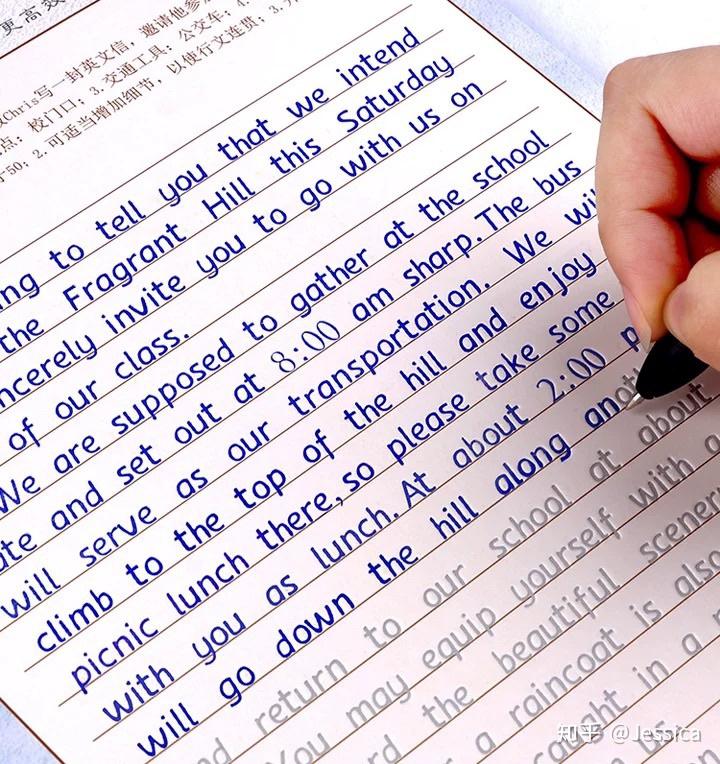 更高效
Chris写一封英文信，邀请他参
点：校门口；3.交通工具：公交车；4.
50；2.可适当增加细节，以使行文连贯；3.
ng to tell you that we intend
the Fragrant Hill this Saturday
ncerely invite you to go with us on
of our class.
We are supposed to gather at the school
te and set out at 8:00 am sharp. The bus
will serve as our transportation. We wi
climb to the top of the hill and enjoy
picnic lunch there, so please take some
with you as lunch. At about 2:00 p
will go down the hill along anot
nd return to our school at about
You may equip yourself with a
rd the beautiful scener
a raincoat is also
caught in a
知乎 @Jessica